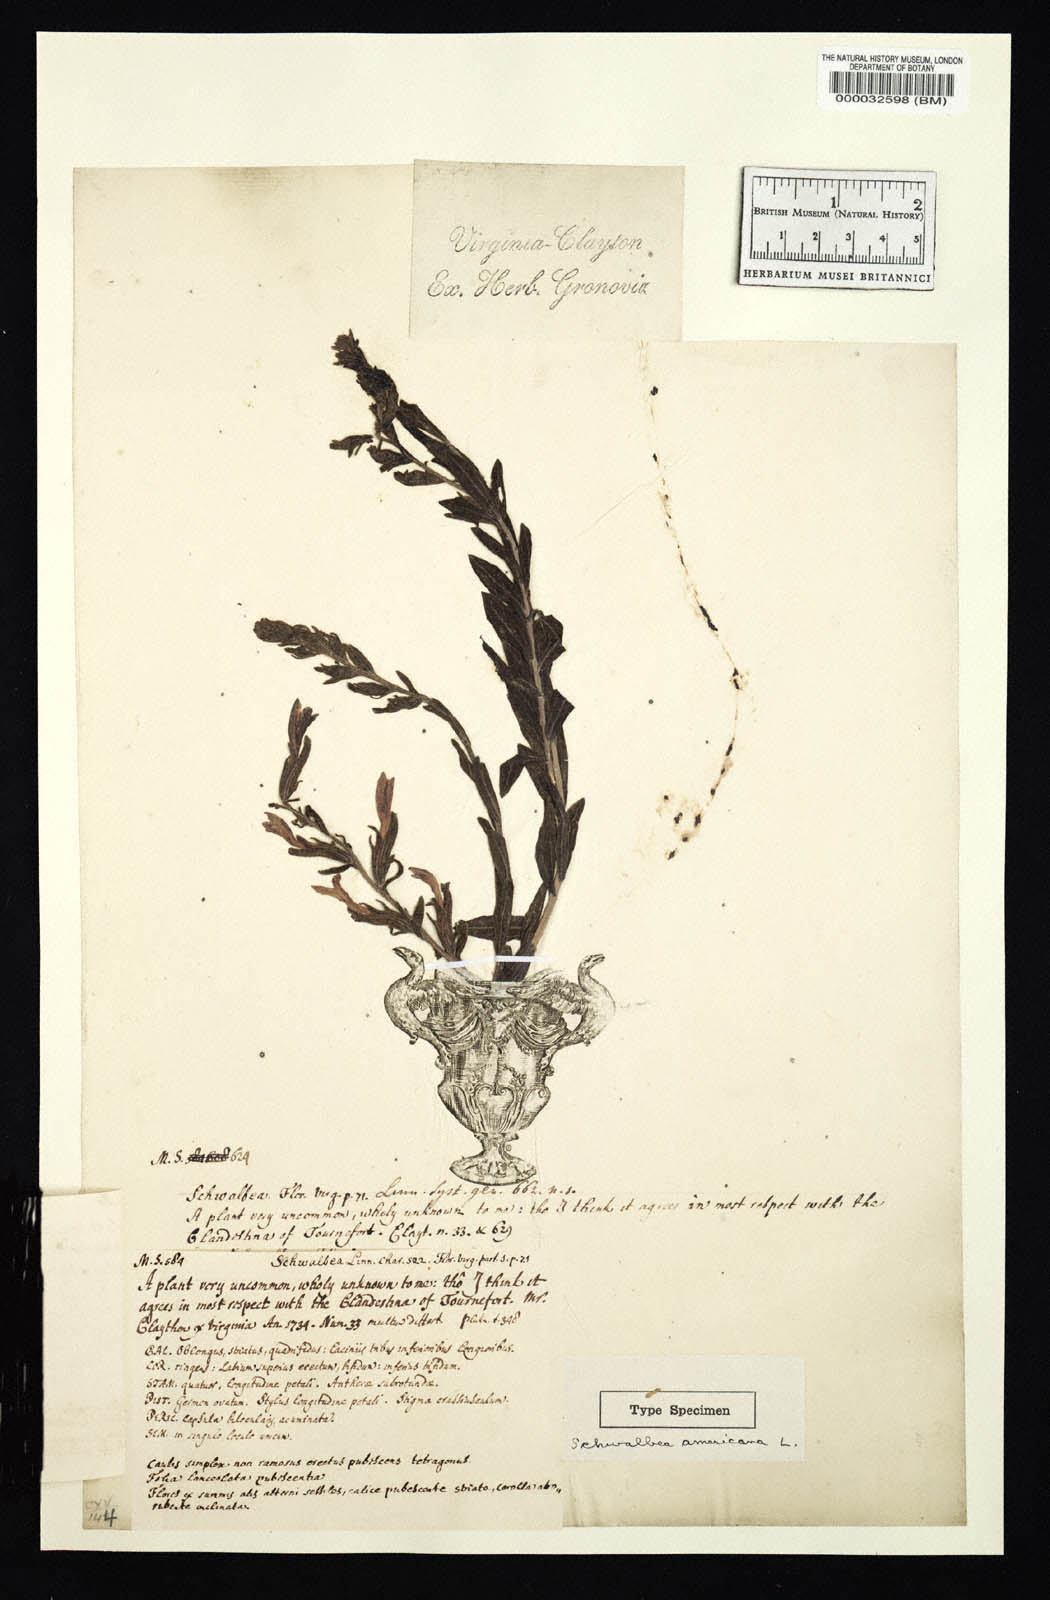 THE NATURAL HISTORY MUSEUM, LONDON
DEPARTMENT OF BOTANY
000032598 (BM)
1 2
BRITISH MUSEUM (NATURAL HISTORY)
1 2 3 4 5
HERBARIUM MUSEI BRITANNICI
Virginia-Clayton
Ex. Herb. Gronovii
M. S. 629
Schwalbea. Flor. virg. p. 71. Linn. Syst. gen. 662. n. 1.
A plant very uncommon, wholy unknown to me: tho I think it agrees in most respect with the
Clandestina of Tournefort. Clayt. n. 33. & 629
M. S. 584 Schwalbea Linn. char. 522. Flor. virg. part. 1. p. 71
A plant very uncommon, wholy unknown to me: tho I think it
agrees in most respect with the Clandestina of Tournefort. Mr.
Claython ex Virginia An. 1734. Num. 33 multum differt
CAL. Oblongus, striatus, quadrifidus: laciniis tribus inferioribus longioribus.
COR. ringens: Labium superius erectum, bifidum: inferius trifidum.
STAM. quatuor, longitudine petali. Antherae subrotundae.
PIST. Germen ovatum. Stylus longitudine petali. Stigma crassiusculum.
PERIC. capsula bilocularis, acuminata?
SEM. in singulo loculo unum.
Caulis simplex non ramosus erectus pubescens tetragonus.
Folia lanceolata pubescentia
Flores ex summis alis alterni sessiles, calice pubescente striato, corolla
inclinatae
144
Type Specimen
Schwalbea americana L.